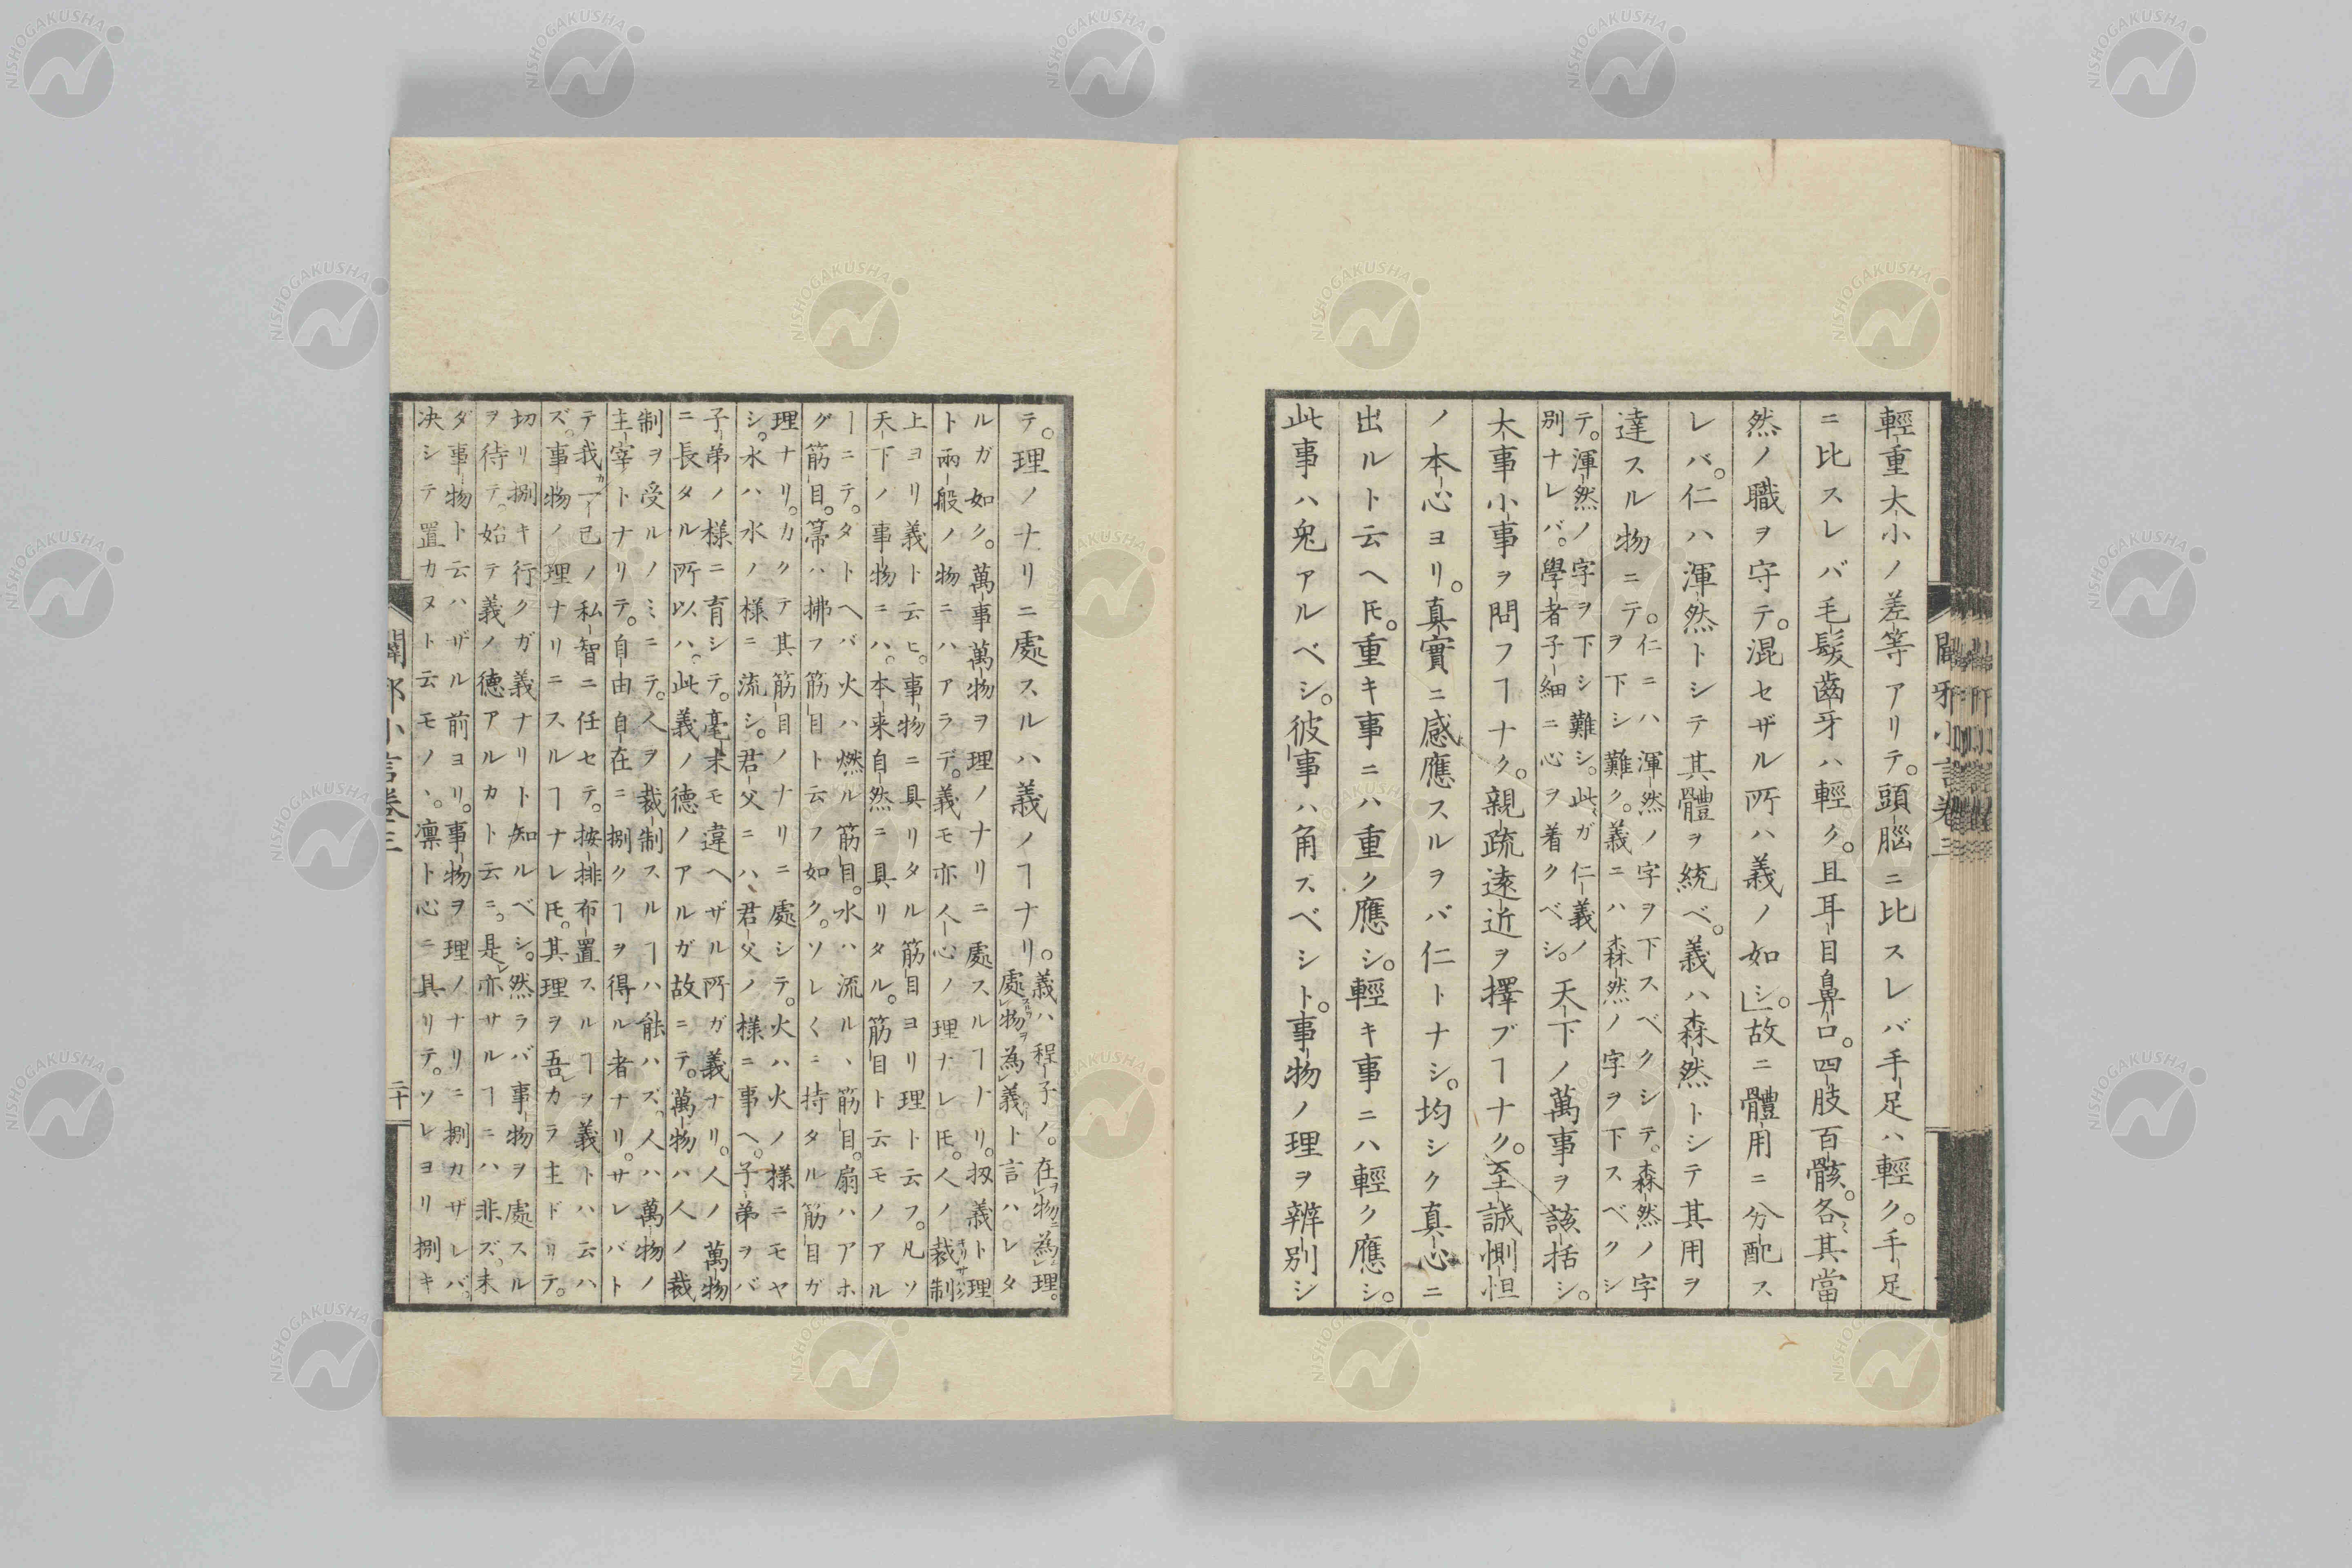 輕重大小ノ差等アリテ。頭腦ニ比スレバ手足ハ輕ク。手足
ニ比スレバ毛髮齒牙ハ輕ク。且耳目鼻口。四肢百骸。各〻其當
然ノ職ヲ守テ。混セザル所ハ義ノ如シ。」故ニ體用ニ分配ス
レバ。仁ハ渾然トシテ其體ヲ統ベ。義ハ森然トシテ其用ヲ
達スル物ニテ。
仁ニハ渾然ノ字ヲ下スベクシテ。森然ノ字
ヲ下シ難ク。義ニハ森然ノ字ヲ下スベクシ
テ。渾然ノ字ヲ下シ難シ。此ガ仁義ノ
別ナレバ。學者子細ニ心ヲ着クベシ。
天下ノ萬事ヲ該括シ。
大事小事ヲ問フヿナク。親疏遠近ヲ擇ブヿナク。至誠惻怛
ノ本心ヨリ。真實ニ感應スルヲバ仁トナシ。均シク真心ニ
出ルト云ヘ𪜈。重キ事ニハ重ク應シ。輕キ事ニハ輕ク應シ。
此事ハ兔アルベシ。彼事ハ角スベシト。事物ノ理ヲ辨別シ
テ。理ノナリニ處スルハ義ノヿナリ。
義ハ程子ノ。在物為理。
處物為義ト言ハレタ
ルガ如ク。萬事萬物ヲ理ノナリニ處スルヿナリ。扨義ト理
ト兩般ノ物ニハアラデ。義モ亦人心ノ理ナレ𪜈。人ノ裁制
上ヨリ義ト云ヒ。事物ニ具リタル筋目ヨリ理ト云フ。凡ソ
天下ノ事物ニハ。本来自然ニ具リタル。筋目ト云モノアル
ヿニテ。タトヘバ火ハ燃ル筋目。水ハ流ルヽ筋目。扇ハアホ
グ筋目。箒ハ拂フ筋目ト云フ如ク。ソレ〱ニ持タル筋目ガ
理ナリ。カクテ其筋目ノナリニ處シテ。火ハ火ノ様ニモヤ
シ。水ハ水ノ様ニ流シ。君父ニハ、君父ノ様ニ事ヘ。子弟ヲバ
子弟ノ様ニ育シテ。毫末モ違ヘザル所ガ義ナリ。人ノ萬物
ニ長タル所以ハ。此義ノ德ノアルガ故ニテ。萬物ハ人ノ裁
制ヲ受ルノミニテ。人ヲ裁制スルヿハ能ハズ。人ハ萬物ノ
主宰トナリテ。自由自在ニ捌クヿヲ得ル者ナリ。サレバト
テ我一己ノ私智ニ任セテ。按排布置スルヿヲ義トハ云ハ
ズ。事物ノ理ナリニスルヿナレ𪜈。其理ヲ吾カラ主ドリテ。
切リ捌キ行クガ義ナリト知ルベシ。然ラバ事物ヲ處スル
ヲ待テ。始テ義ノ德アルカト云ニ。是亦サルヿニハ非ズ。未
ダ事物ト云ハザル前ヨリ。事物ヲ理ノナリニ捌カザレバ。
決シテ置カヌト云モノヽ。凛ト心ニ具リテ。ソレヨリ捌キ
闢邪小言卷三
二十